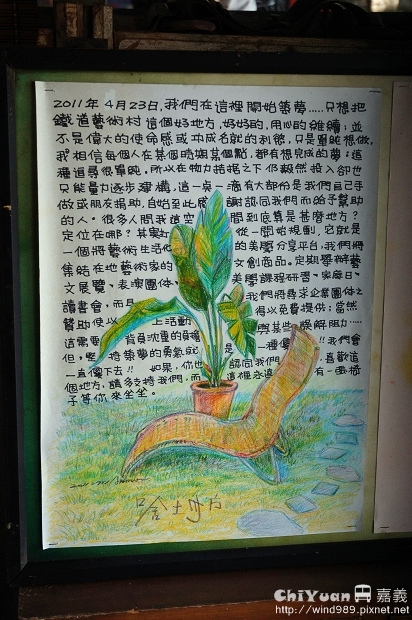 2011年4月23日,我們在這裡開始築夢.....只想把
鐵道藝術村這個好地方,好好的,用心的維續;並
不是偉大的使命感或功成名就的利慾,只是單純想做,
我相信每個人在某個時期某個點,都有想完成的夢;這
種追尋很單純,所以在物力拮据之下仍毅然投入卻也
只能量力逐步建構,這一桌一滴有大部份是我們自己手
做或朋友捐助,自始至此感 謝認同我們而給予幫助
的人。很多人問我這空 間到底是甚麼地方?
定位在哪?其實 從一開始規劃,它就是
一個將藝術生活化 的美學分享平台,我們將
集結在地藝術家的 文創商品。定期舉辦藝
文展覽、表演團体、 美學課程研習、家庭日、
讀書會,而且 我們將尋求企業團体之
贊助使以 上活動 得以免費提供;當然
這需要 背負沈重的負擔 與某些 瞭解阻力.....
但,堅持築夢的勇氣就是 一種優 !!我們會
一直做下去!! 如果,你也 認同我們 ,喜歡這
個地方,請多支持我們,而這裡永遠 有一張椅
子等你來坐坐。
哈土丹方
ChiYuan 嘉義
http://wind989.pixnet.net/blog